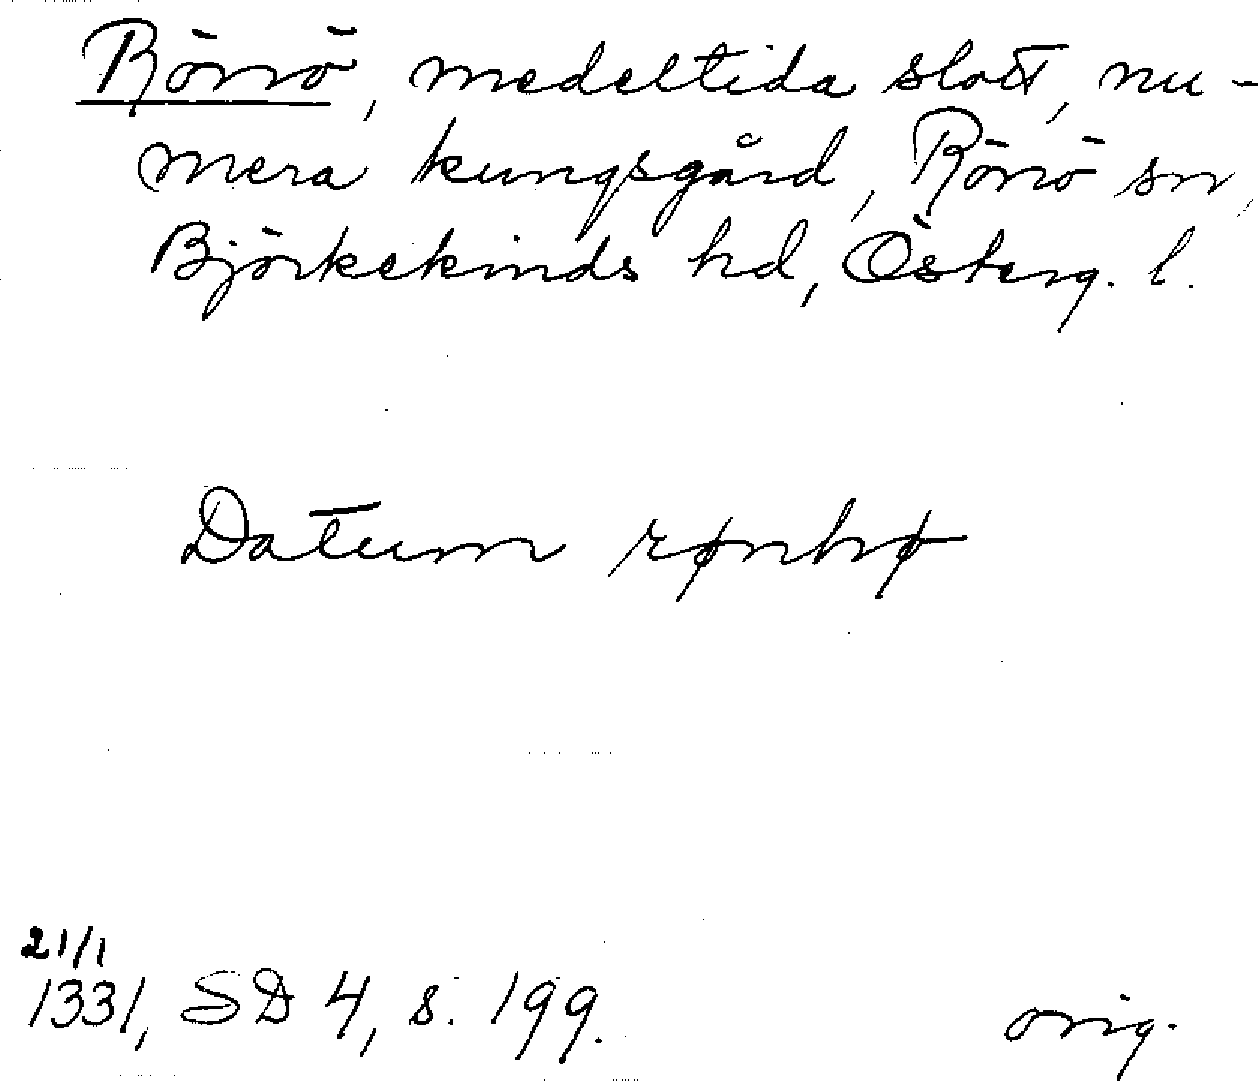 Rönö, medeltida slott, nu-
mera kungsgård, Rönö sn,
Björkekinds hd, Österg. l.
Datum rønhø
21/1
1331, SD 4, s. 199.
orig.